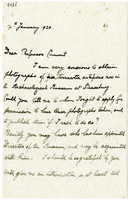 January 1920
Dear Professor Cumont
I am very anxious to obtain
photographs of two terracotta
the Archaeological Museum at
Could you tell me to whom I ought to apply for
permission to have these photographs taken, and
to publish them if I wish to do so?
Possibly you may know who has been appointed
Director of the Museum and may be acquainted
with him. I should be so grateful if you
could give me an introduction, or at least tell